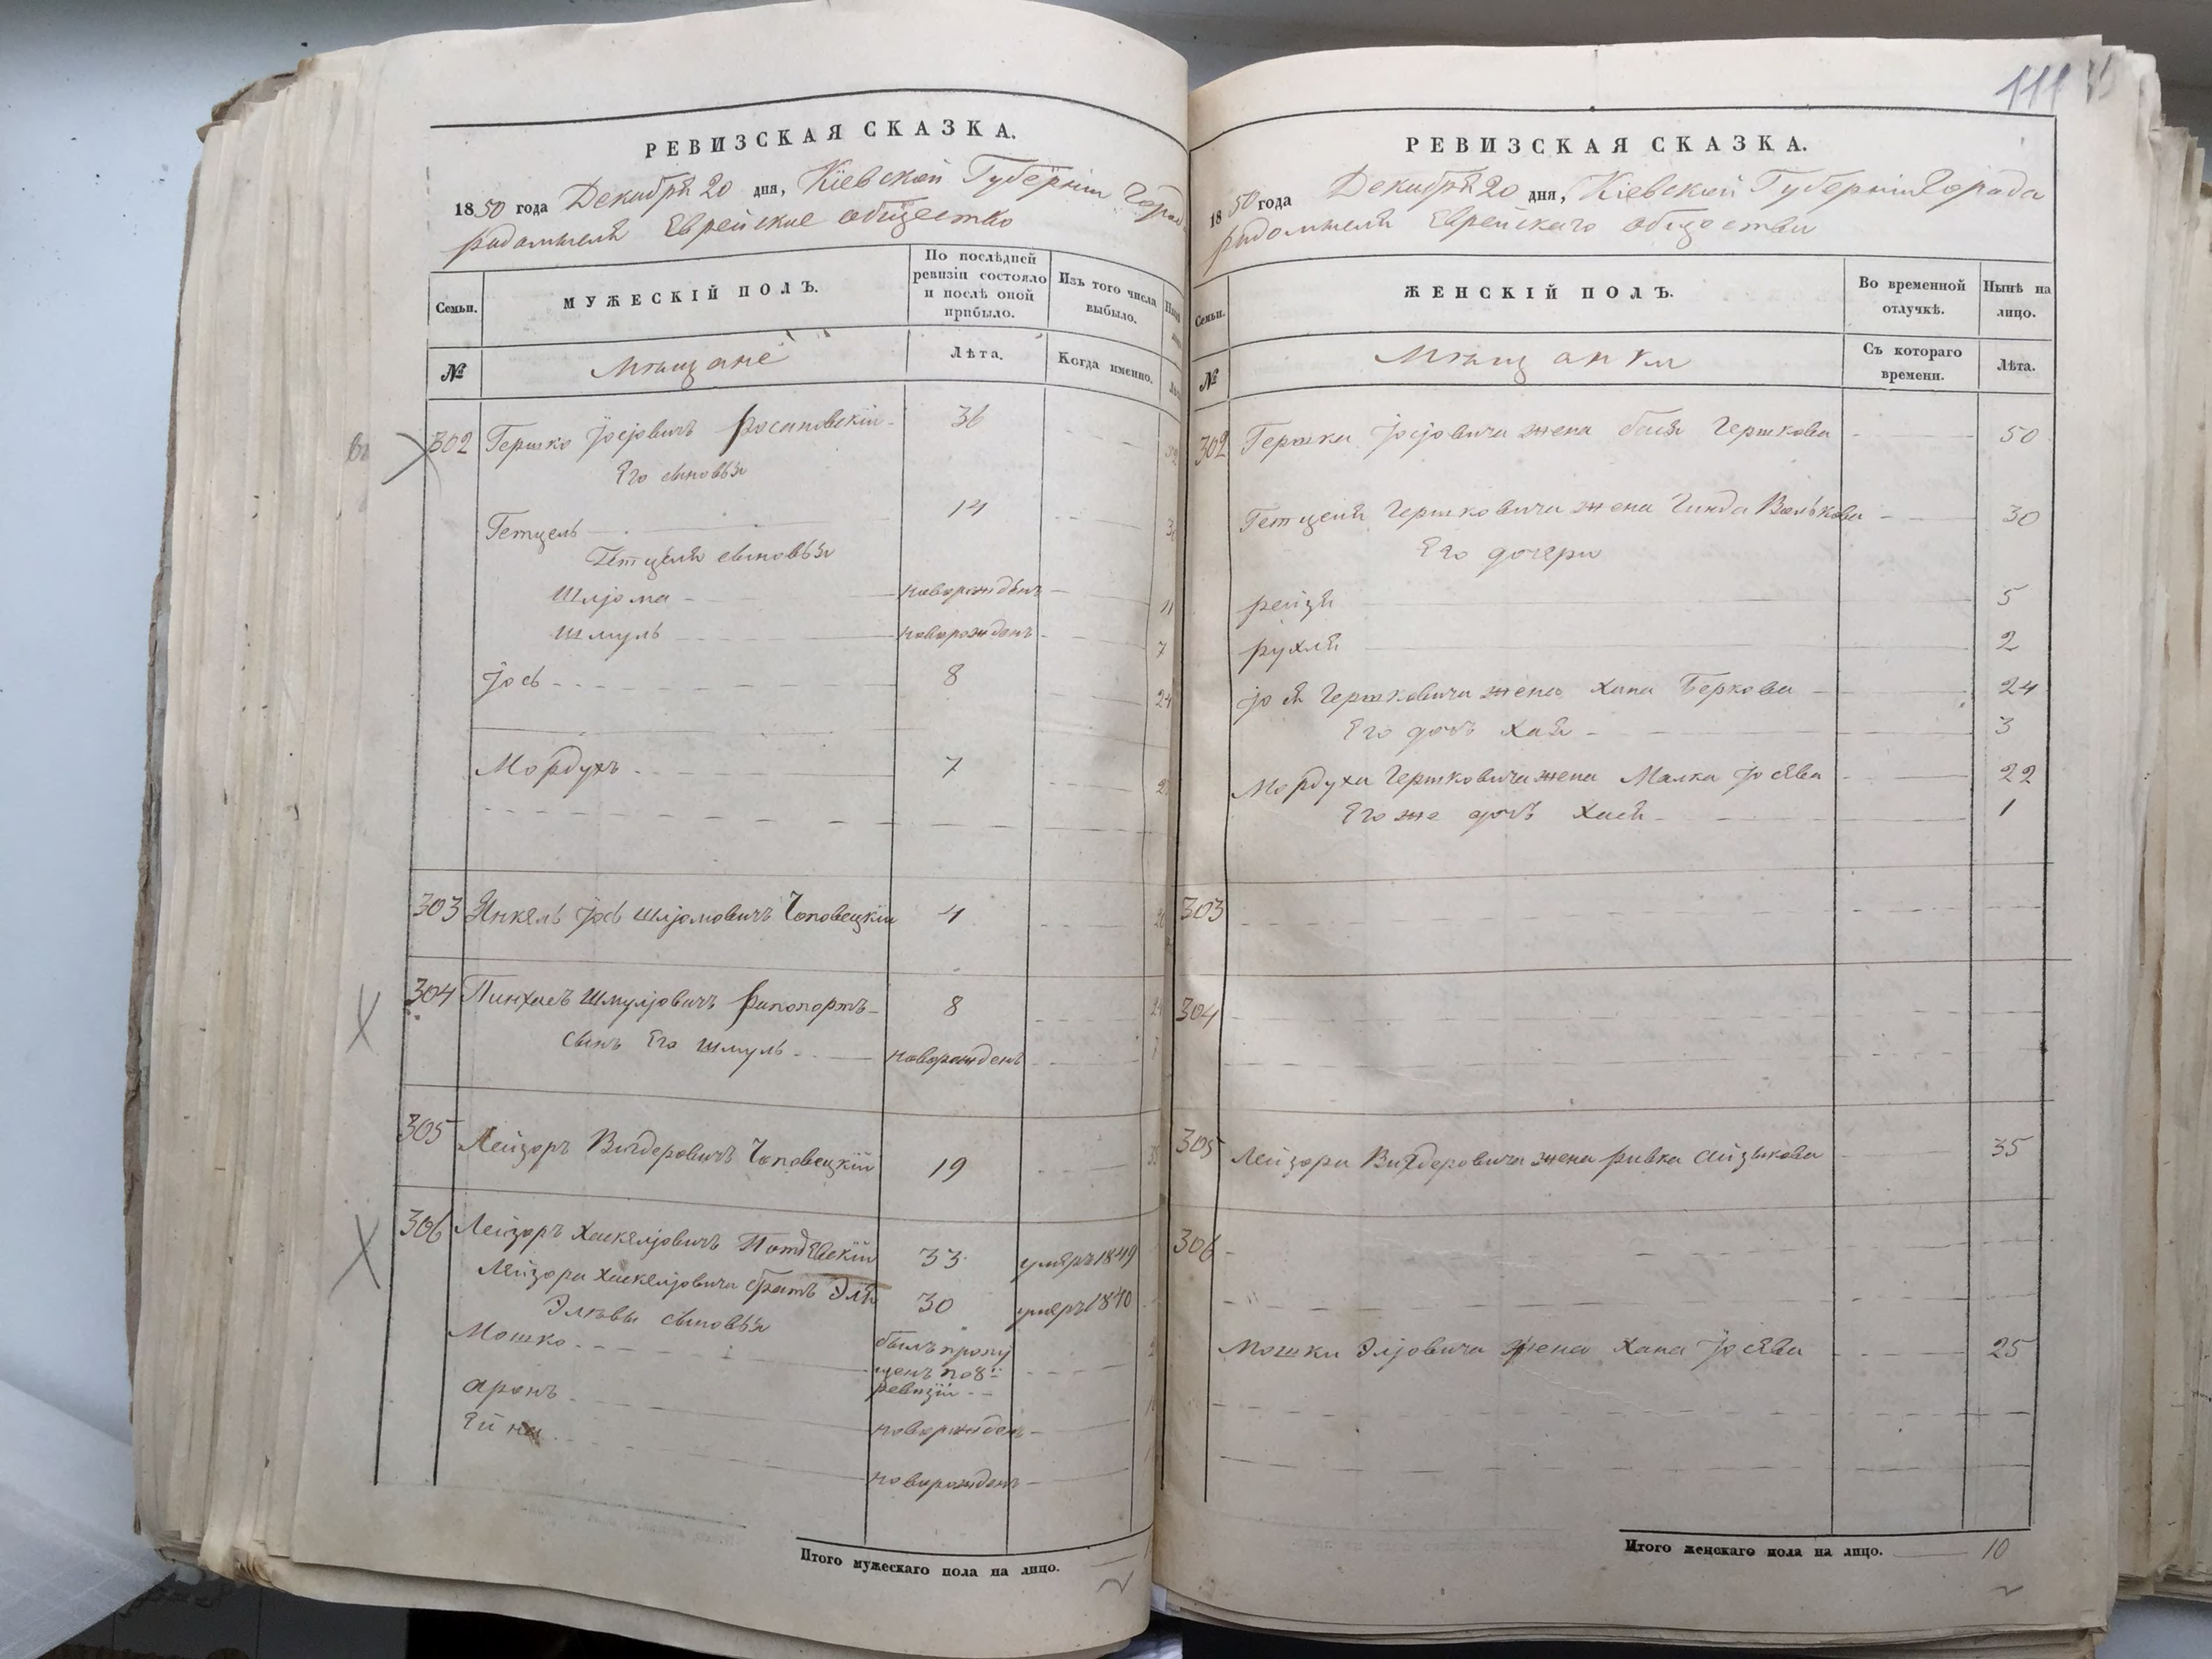 РЕВИЗСКАЯ СКАЗКА.
1850 года Декабря 20 дня, Кіевской Губерніи
Радомысля Еврейское общество
Семьи.
МУЖЕСКІЙ ПОЛЪ.
По послѣдней ревизіи состояло и послѣ оной прибыло.
Изъ того числа выбыло.
№
Мѣщане
Лѣта.
Когда именно.
302 Гершко Іосіовичъ Росановскій 36
Его сыновья
Гетцель 14
Гетцеля сыновья
Шліома новорожденъ 11
Шмуль новорожденъ 7
Іось 8 24
Мордухъ 7
303 Янкель Іось Шліомовичъ Чоповецкій 4
304 Пинхасъ Шмуліовичъ Рапопортъ 8
сынъ Его Шмуль новорожденъ
305 Лейзоръ Вигдеровичъ Чоповецкій 19
306 Лейзоръ Хаскеліовичъ 33 умеръ 1849
Лейзора Хаскеліовича братъ Эля 30 умеръ 1840
Эліовы сыновья
Мошко былъ пропу
щенъ по 8й
ревизіи
Аронъ новорожденъ
новорожденъ
Итого мужескаго пола на лицо.
111
РЕВИЗСКАЯ СКАЗКА.
1850 года Декабря 20 дня, Кіевской Губерніи Города
Радомысля Еврейскаго общества
Семьи.
ЖЕНСКІЙ ПОЛЪ.
Во временной отлучкѣ.
Нынѣ на лицо.
№
Мѣщанки
Съ котораго времени.
Лѣта.
302 Гершка Іосіовича жена бася Гершкова 50
Гетцеля Гершковича жена Гинда Волькова 30
Его дочери
Рейзя 5
Рухля 2
Іося Гершковича жена Хана Беркова 24
Его дочь Хая 3
Мордуха Гершковича жена Малка Іосева 22
Его же дочь Хася 1
303
304
305 Лейзора Вигдеровича жена Ривка Айзикова 35
306
Мошки Эліовича жена Хана Іосева 25
Итого женскаго пола на лицо. 10